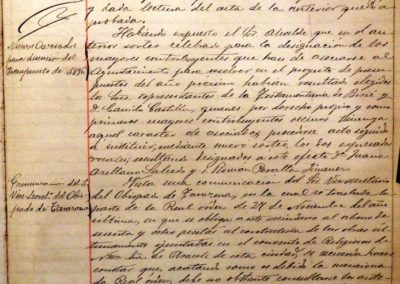 y dada lectura del acta de la anterior quedó a-
probada.
Nuevos Asociados
para discusión del
Presupuesto de 1896
Habiendo expuesto el Sr. Alcalde que en el an-
terior sorteo celebrado para la designación de los
mayores contribuyentes que han de asociarse al
Ayuntamiento para resolver en el proyecto de presu-
puestos del año próximo habían resultado elegidos
los Sres. representantes de la
D. Camilo Castilla, quienes por derecho propio y como
primeros mayores contribuyentes
aquel carácter de asociados, procedióse acto seguido
a sustituir, mediante nuevo sorteo, los dos expresados
vocales, resultando designados a este efecto D. Juan
Arellano Salcedo y D. Román Peralta Jimenez.
Comunicación del S.
Vice Secret. del Obis-
pado de Tarazona
Vista una comunicación del Sr. Vicesecretario
del Obispado de Tarazona, en la cual se traslada la
parte de la Real orden de 28 de Noviembre del año
último, en que se obliga a este municipio al abono de
cuenta y ocho pesetas al contratista de las obras úl-
timamente ejecutadas en el convento de Religiosas
de esta ciudad, se acuerda hacer
constar que, acatando como es debido la menciona-
da Real orden, debe no obstante